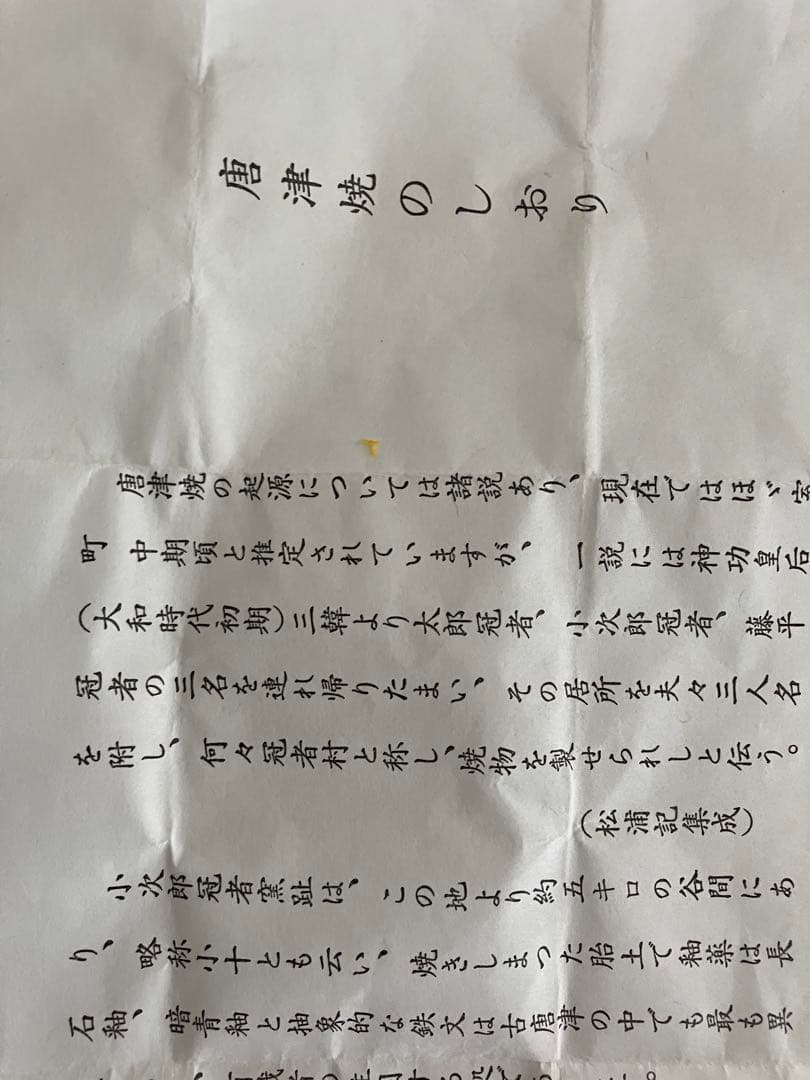 唐津焼のしおり
唐津焼の起源については諸説あり、現在ではほゞ室
町 中期頃と推定されていますが、 一説には神功皇后
（大和時代初期）三韓より太郎冠者、小次郎冠者、藤平
冠者の三名を連れ帰りたまい、その居所を夫々三人名
を附し、何々冠者村と称し、焼物を製せられしと伝う。
（松浦記集成）
小次郎冠者窯趾は、この地より約五キロの谷間にあ
り、略称小十とも云い、焼きしまった胎土で釉薬は長
石釉、暗青釉と抽象的な鉄文は古唐津の中でも最も異